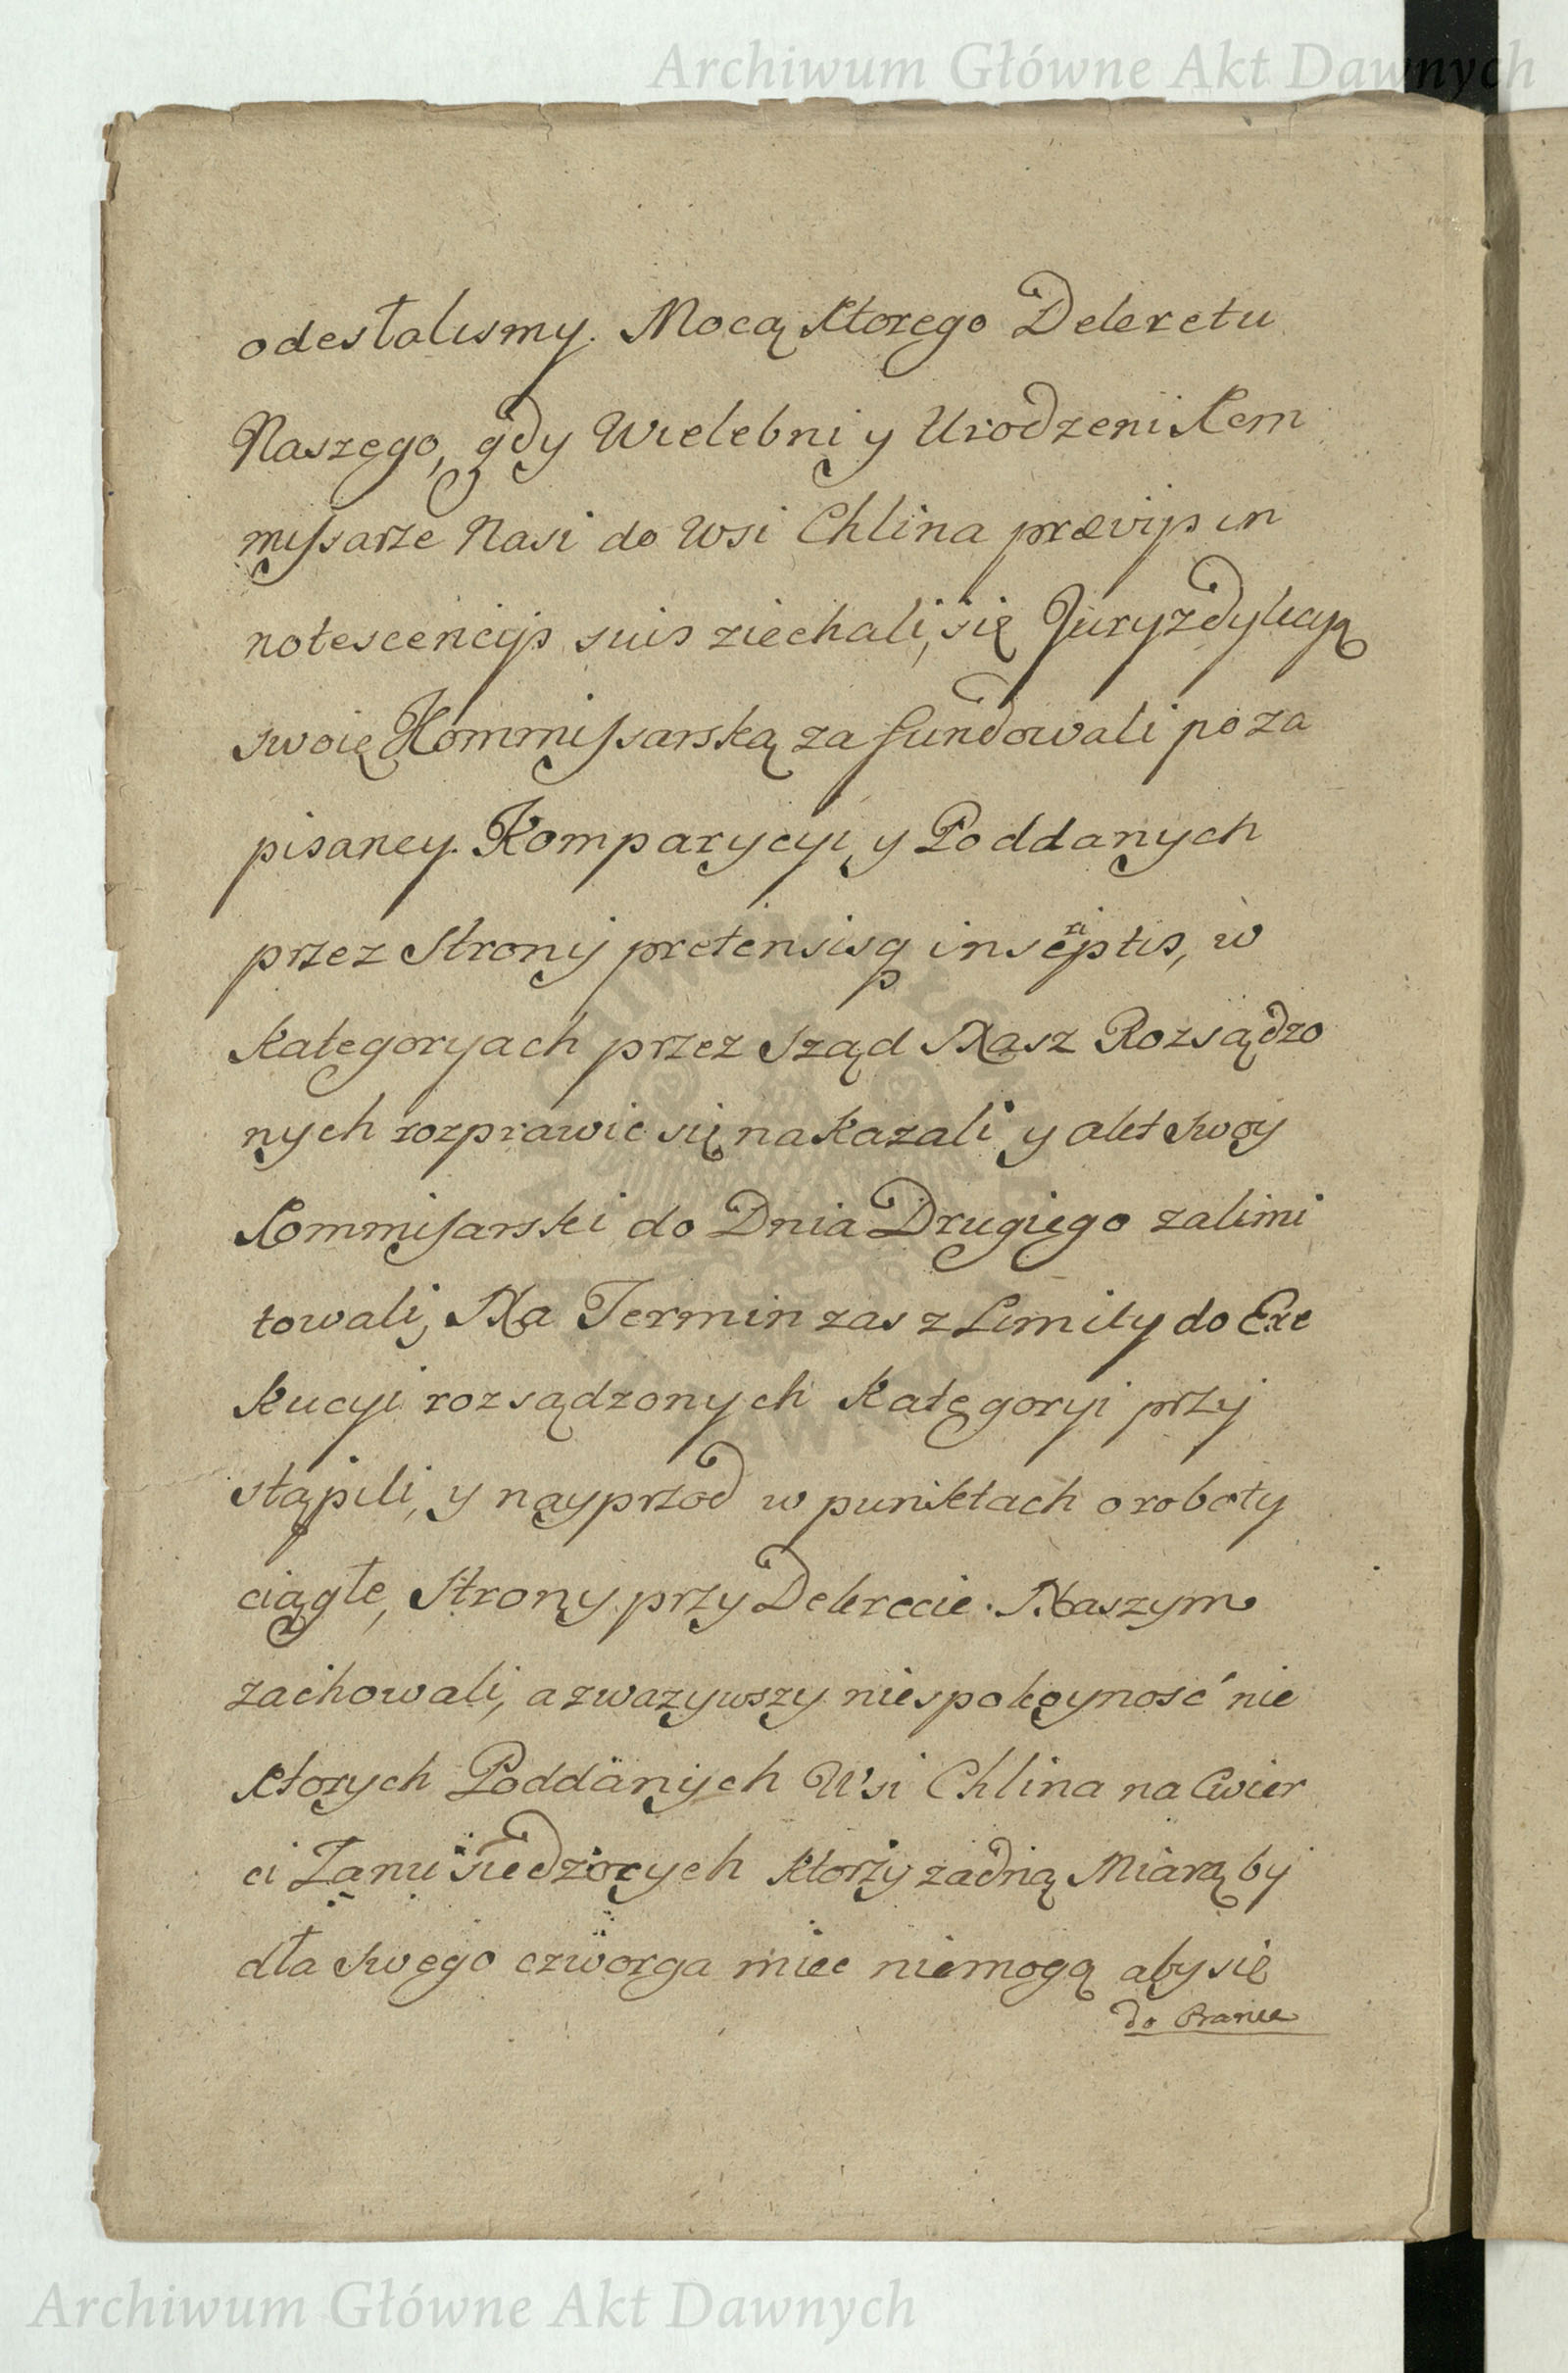 Archiwum Główne Akt Dawnych
odesłalismy. Mocą ktorego Dekretu
Naszego, gdy Wielebni y Urodzeni Kom
missarze Nasi do Wsi Chlina prævijs in
notescencijs suis ziechali, się Juryzdykcyą
swoię Kommissarską za fundowali po za
pisaney Komparycyi y Poddanych
przez Strony pretensisq inscriptis, w
kategoryach przez Sząd Nasz Rozsądzo
nych rozprawic się nakazali y akt swoy
Kommisarski do Dnia Drugiego zalimi
towali, Na Termin zas z Limity do Exe
kucyi rozsądzonych kategoryi przy
stąpili, y nayprzod w punktach o roboty
ciągłe, Strony przy Dekrecie Naszym
zachowali, a zwazywszy niespokoyność nie
ktorych Poddanych Wsi Chlina na Cwier
ci Łanu siedzących ktorzy zadną Miarą by
dła swego czworga miec niemogą aby się
do Pranie
Archiwum Główne Akt Dawnych